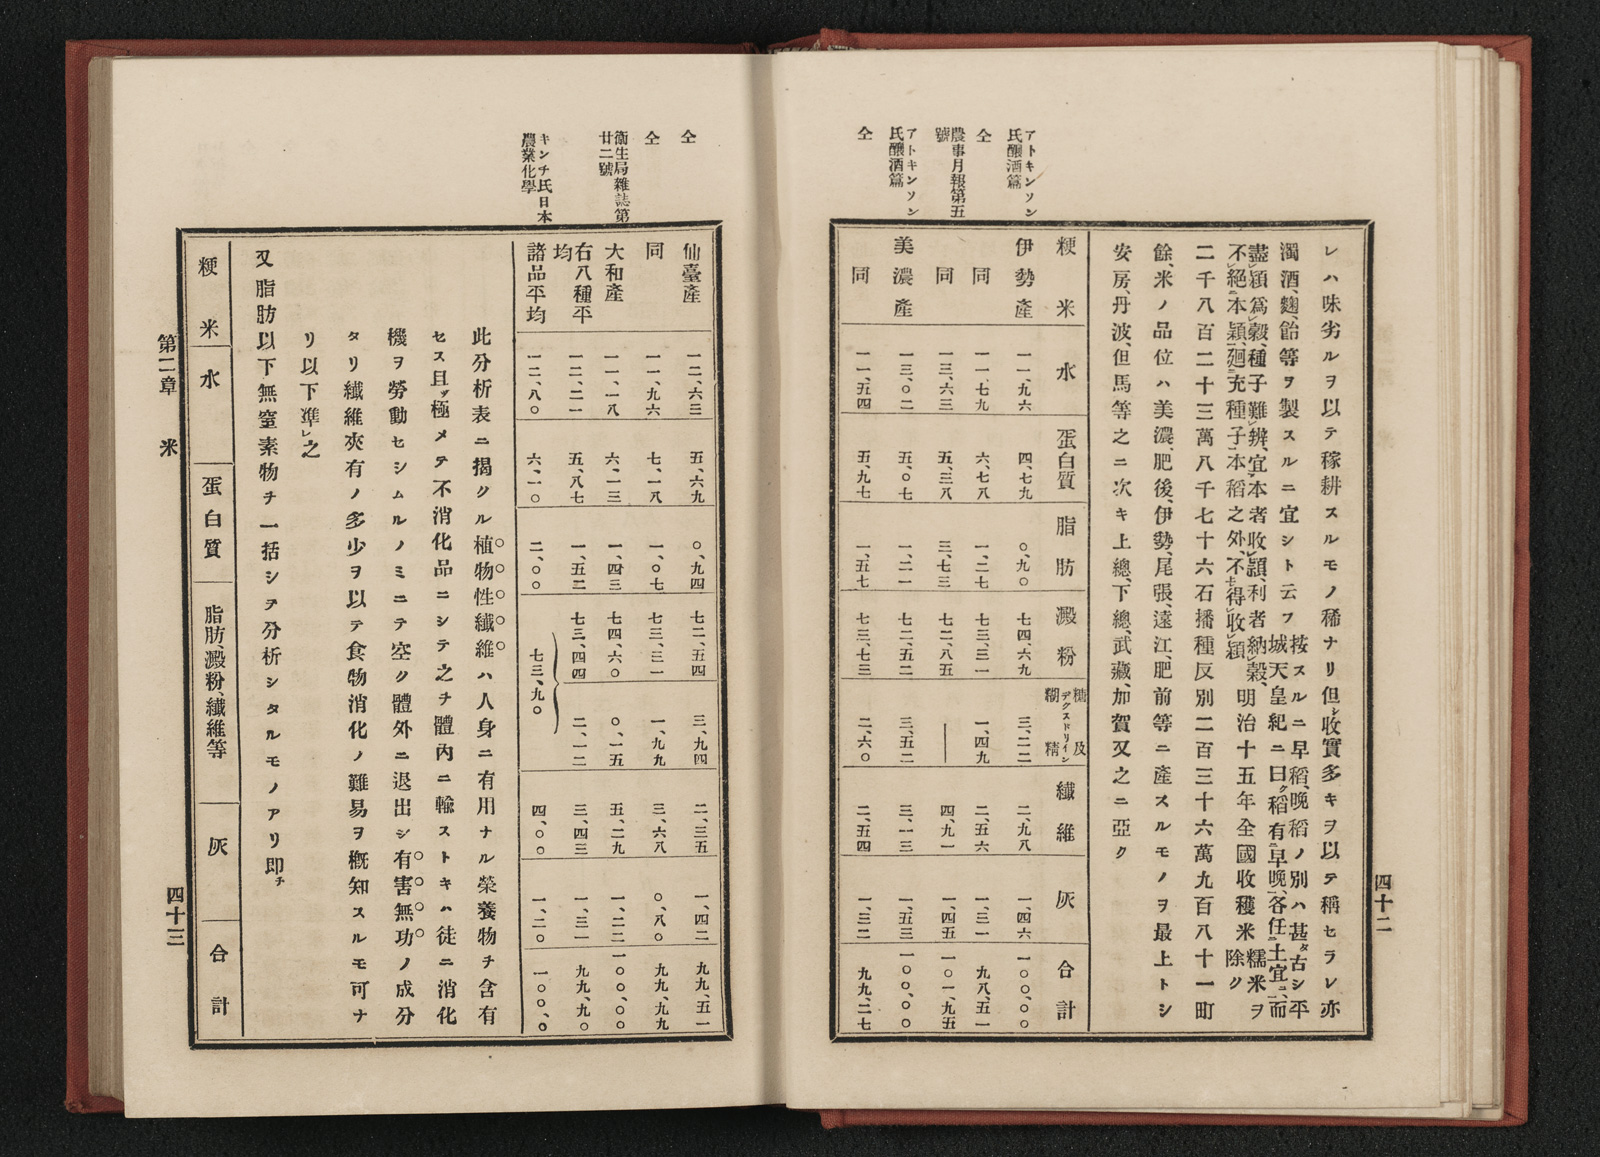 四十二
レハ味劣ルヲ以テ稼耕スルモノ稀ナリ但シ收實多キヲ以テ稱セラレ亦
濁酒、麴、飴等ヲ製スルニ宜シト云フ
按スルニ早稻、晚稻ノ別ハ甚タ古シ平
城天皇紀ニ曰ク稻有早晚、各任土宜、而
盡穎爲穀、種子難辨、宜本者收穎、利者納穀、
不絕本穎、廻充種子、本稻之外、不得收穎
明治十五年全國收穫米
糯米ヲ
除ク
二千八百二十三萬八千七十六石播種反別二百三十六萬九百八十一町
餘、米ノ品位ハ美濃、肥後、伊勢、尾張、遠江、肥前等ニ產スルモノヲ最上トシ
安房、丹波、但馬等之ニ次キ上總、下總、武藏、加賀又之ニ亞ク
粳米 水 蛋白質 脂肪 澱粉 糖及デクスドリイン糊精 纎維 灰 合計
アトキンソン
氏釀酒篇
伊勢產 一一、九六 四、七九 〇、九〇 七四、六九 三、二二 二、九八 一、四六 一〇〇、〇〇
仝
同 一一、七九 六、七八 一、二七 七三、三一 一、四九 二、五六 一、三一 九八、五一
農事月報第五
號
同 一三、六三 五、三八 三、七三 七二、八五 ― 四、九一 一、四五 一〇一、九五
アトキンソン
氏釀酒篇
美濃產 一三、〇二 五、〇七 一、二一 七二、五二 三、五二 三、一三 一、五三 一〇〇、〇〇
仝
同 一一、五四 五、九七 一、五七 七三、七三 二、六〇 二、五四 一、三二 九九、二七
仝
仙臺產 一二、六三 五、六九 〇、九四 七二、五四 三、九四 二、三五 一、四二 九九、五一
仝
同 一一、九六 七、一八 一、〇七 七三、三一 一、九九 三、六八 〇、八〇 九九、九九
衞生局雜誌第
廿二號
大和產 一一、一八 六、一三 一、四三 七四、六〇 〇、一五 五、二九 一、二二 一〇〇、〇〇
右八種平均 一二、二一 五、八七 一、五二 七三、四四 二、一二 三、四三 一、三一 九九、九〇
キンチ氏日本
農業化學
諸品平均 一二、八〇 六、一〇 二、〇〇 七三、九〇 四、〇〇 一、二〇 一〇〇、〇
此分析表ニ揭クル植物性纎維ハ人身ニ有用ナル榮養物チ含有
セス且ツ極メテ不消化品ニシテ之チ體內ニ輸ストキハ徒ニ消化
機ヲ勞動セシムルノミニテ空ク體外ニ退出シ有害無功ノ成分
タリ纎維夾有ノ多少ヲ以テ食物消化ノ難易ヲ槪知スルモ可ナ
リ以下準之
又脂肪以下無窒素物チ一括シテ分析シタルモノアリ卽チ
粳米 水 蛋白質 脂肪、澱粉、纎維等 灰 合計
第二章 米
四十三